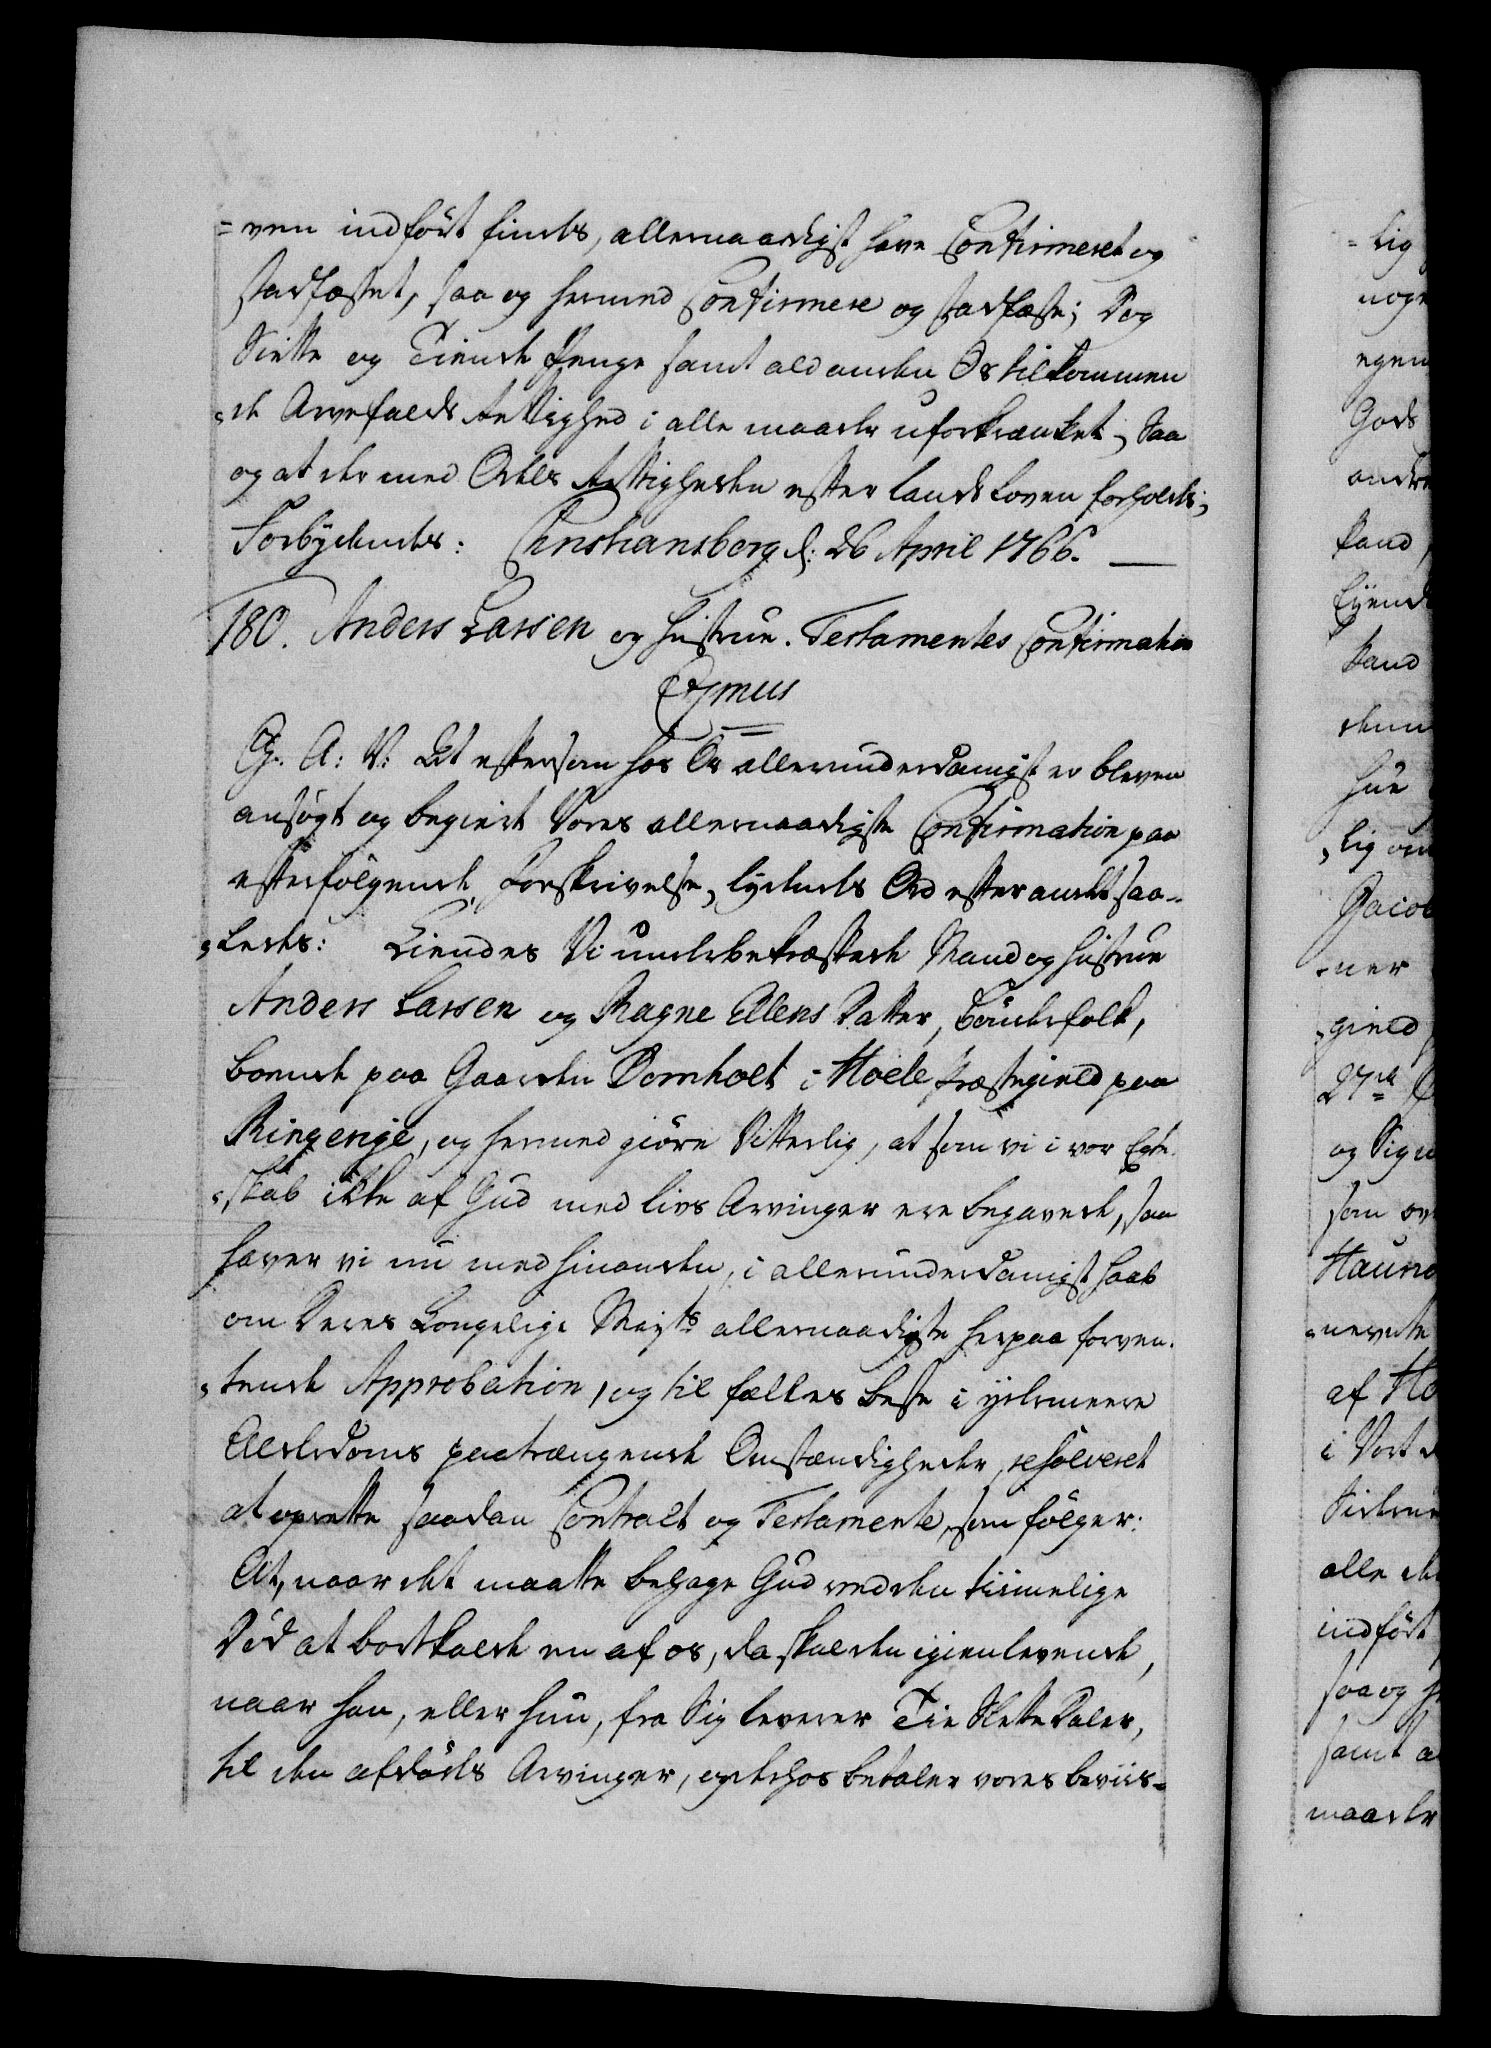 =ven indført findes, allernaadigst have Confirmeret og
stadfæstet, saa og hermed Confirmere og stadfæste; Dog
Siette og Tiende Penge samt ald anden Os tilkommen
=de Arvefalds Rettighed i alle maader uforkrænket; Saa
og at der med Odels Rettigheden efter Lands Loven forholdes;
Forbydendes: Christiansborg d: 26 April 1766.
180. Anders Larsen og Hustrue. Testamentes Confirmation
Gr. A: V: At eftersom hos Os allerunderdanigst er bleven
ansøgt og begiert Vores allernaadigste Confirmation paa
efterfølgende Forskrivelse, lydendes Ord efter andet saa-
=ledes: Kiendes Vi underbekræftede Mand og Hustrue
Anders Larsen og Ragne Ellens Datter, Bøndefolk,
boende paa Gaarden Domholt i Hoele Præstegield paa
Ringerige, og hermed giøre Vitterlig, at som vi i vor Egte-
=skab ikke af Gud med livs Arvinger ere begavede, saa
haver vi nu med hinanden, i allerunderdanigst haab
om Deres Kongelige Mayts allernaadigste herpaa forven-
=tende Approbation, og til fælles beste i ydermeere
Alderdoms paatrængende Omstændigheder, resolveret
at oprette saadan Contract og Testamente, som følger:
At, naar det maatte behage Gud ved den tiimelige
Død at bortkalde en af os, da skal den igienlevende,
naar han, eller hun, fra Sig leverer Tie Slette Daler,
til den afdødes Arvinger, og derhos betaler vores beviis-
=lig
egen
Gods
Hand
hue
Jacob
=ner
=gield
og Sig
som
=nevnte
af
i Vort
alle
indført
saa og
samt a
maader